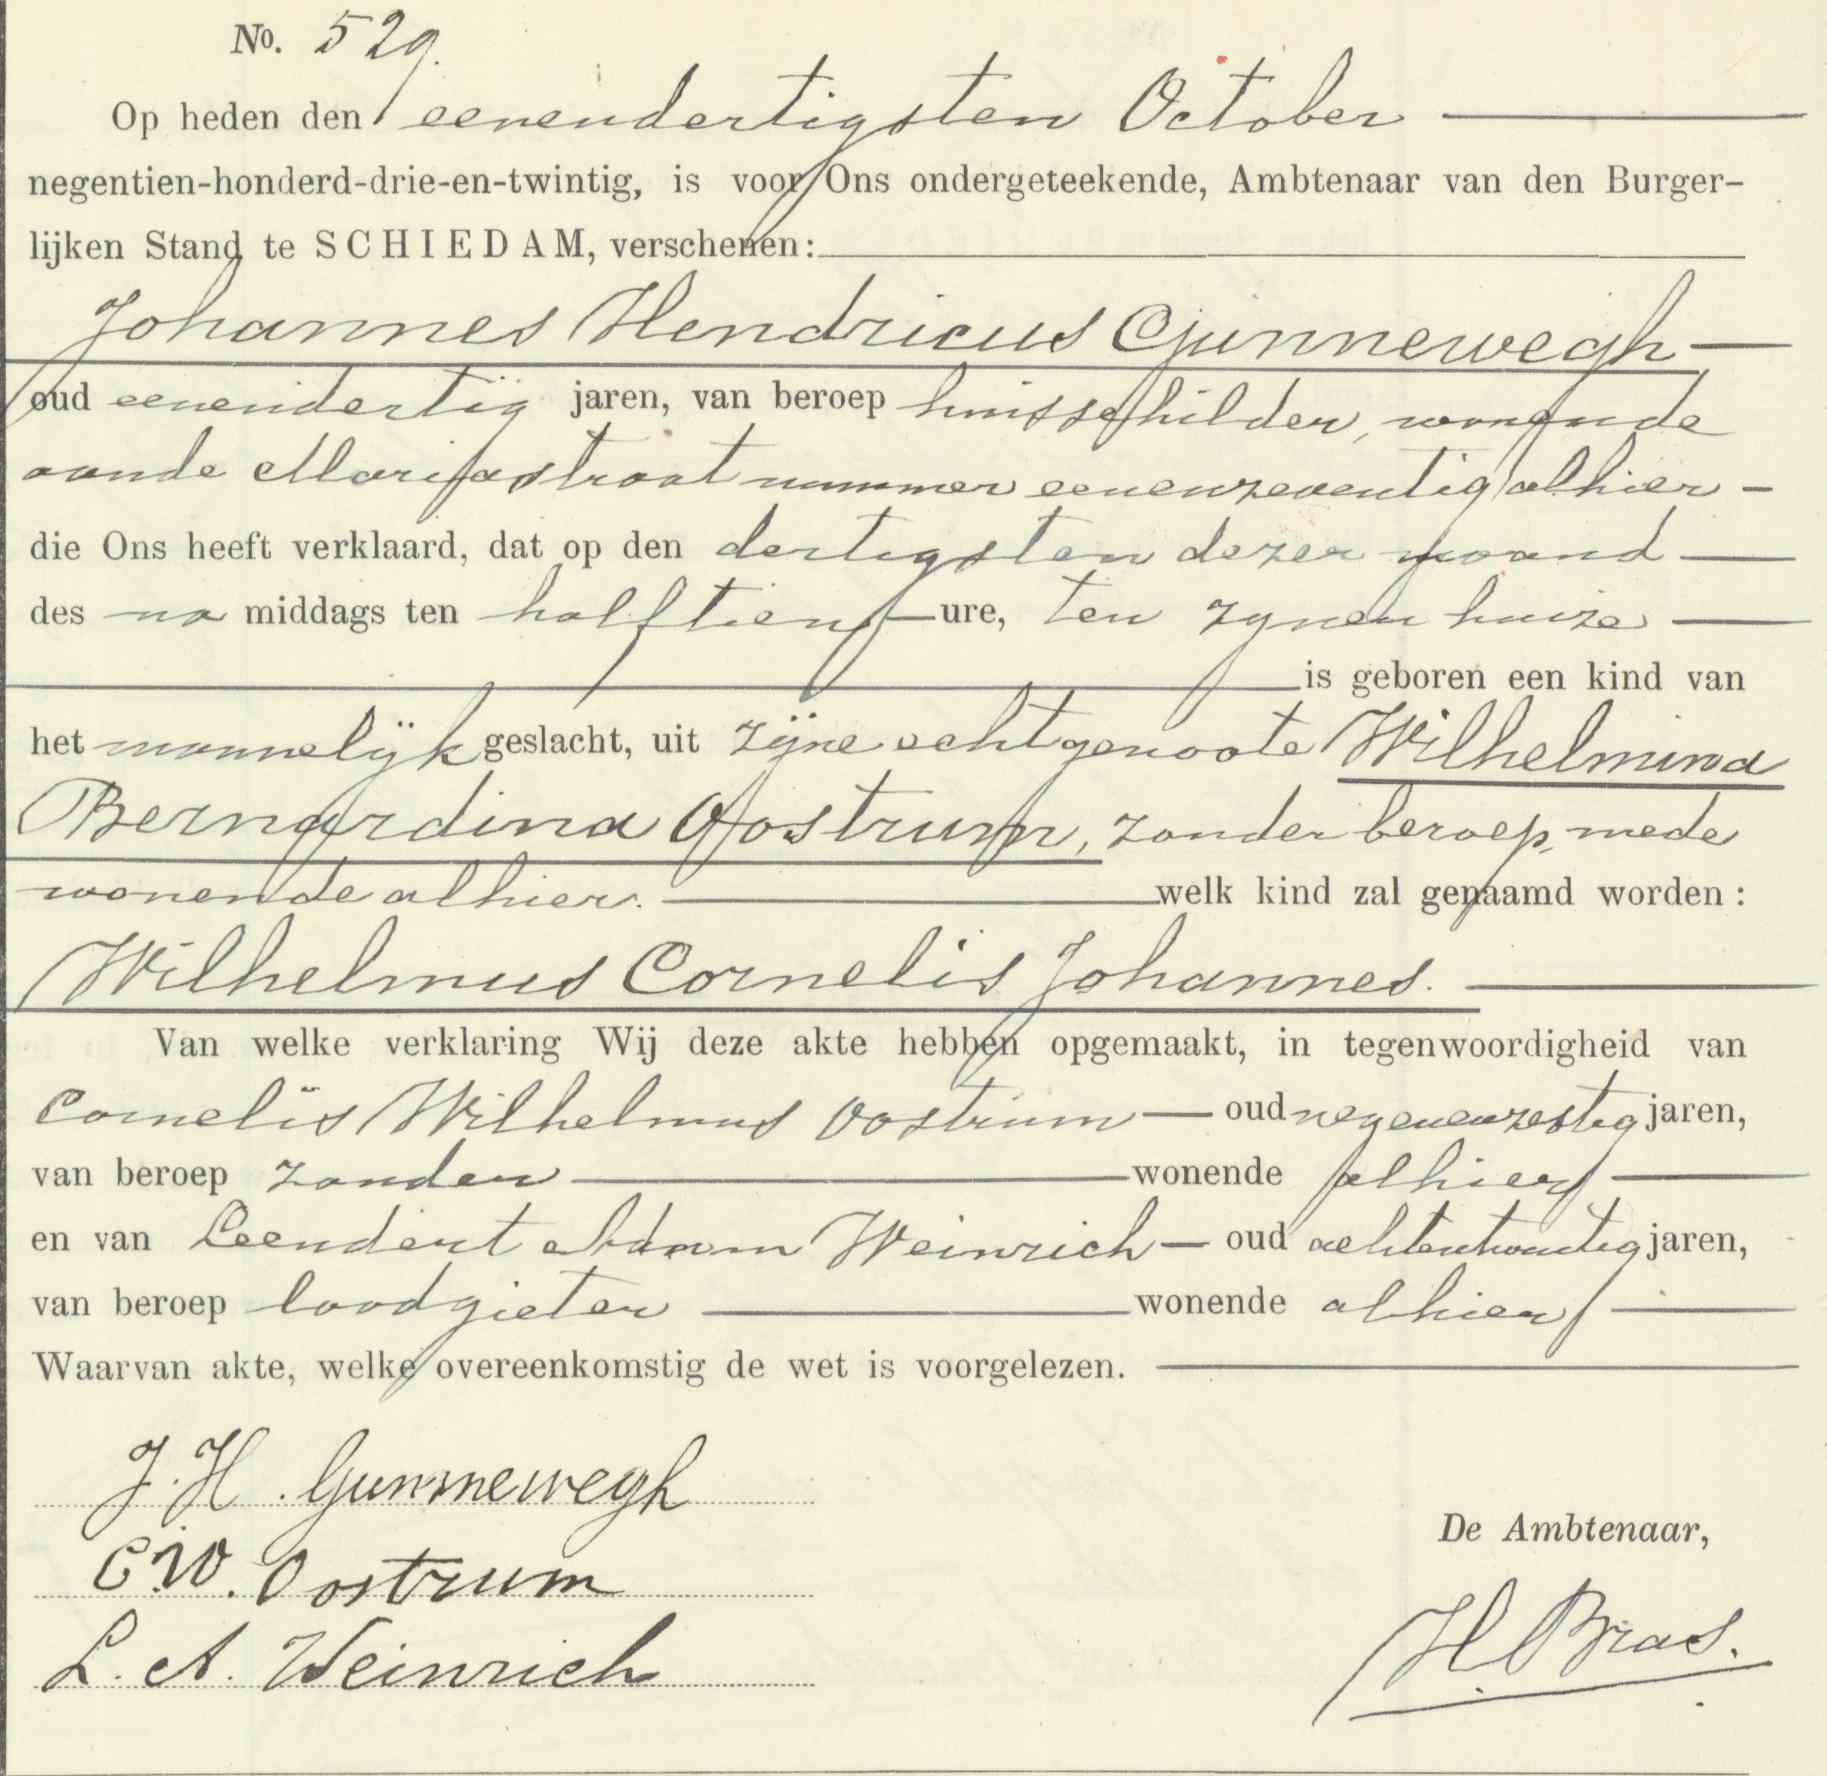 No. 529.
Op heden den eenendertigsten October
negentien-honderd-drie-en-twintig, is voor Ons ondergeteekende, Ambtenaar van den Burger-
lijken Stand te SCHIEDAM, verschenen:
Johannes Hendricus Gunnewegh
oud eenendertig jaren, van beroep huisschilder, wonende
aande Mariastraat nummer eenenzeventig alhier
die Ons heeft verklaard, dat op den dertigsten dezer maand
des na middags ten half tien ure, ten zynen huize
is geboren een kind van
het mannelijk geslacht, uit zijne echtgenoote Wilhelmina
Bernardina Oostrum, zonder beroep, mede
wonende alhier. welk kind zal genaamd worden:
Wilhelmus Cornelis Johannes.
Van welke verklaring Wij deze akte hebben opgemaakt, in tegenwoordigheid van
Cornelis Wilhelmus Oostrum oud negenenzestig jaren,
van beroep zonder wonende alhier
en van Leendert Adam Weinrich oud achtentwintig jaren,
van beroep loodgieter wonende alhier
Waarvan akte, welke overeenkomstig de wet is voorgelezen.
J. H. Gunnewegh
C. W. Oostrum
L. A. Weinrich
De Ambtenaar,
H Bras.